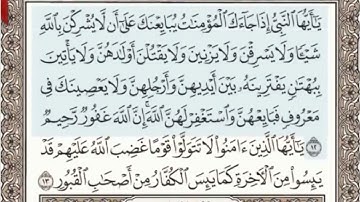 يَـٰٓأَيُّهَا ٱلنَّبِيُّ إِذَا جَآءَكَ ٱلْمُؤْمِنَـٰتُ يُبَايِعْنَكَ عَلَىٰٓ أَن لَّا يُشْرِكْنَ بِٱللَّهِ
شَيْـًٔا وَلَا يَسْرِقْنَ وَلَا يَزْنِينَ وَلَا يَقْتُلْنَ أَوْلَـٰدَهُنَّ وَلَا يَأْتِينَ
بِبُهْتَـٰنٍ يَفْتَرِينَهُۥ بَيْنَ أَيْدِيهِنَّ وَأَرْجُلِهِنَّ وَلَا يَعْصِينَكَ فِى
مَعْرُوفٍ فَبَايِعْهُنَّ وَٱسْتَغْفِرْ لَهُنَّ ٱللَّهَ إِنَّ ٱللَّهَ غَفُورٌ رَّحِيمٌ
١٢ يَـٰٓأَيُّهَا ٱلَّذِينَ ءَامَنُوا۟ لَا تَتَوَلَّوْا۟ قَوْمًا غَضِبَ ٱللَّهُ عَلَيْهِمْ قَدْ
يَئِسُوا۟ مِنَ ٱلْـَٔاخِرَةِ كَمَا يَئِسَ ٱلْكُفَّارُ مِنْ أَصْحَـٰبِ ٱلْقُبُورِ ١٣